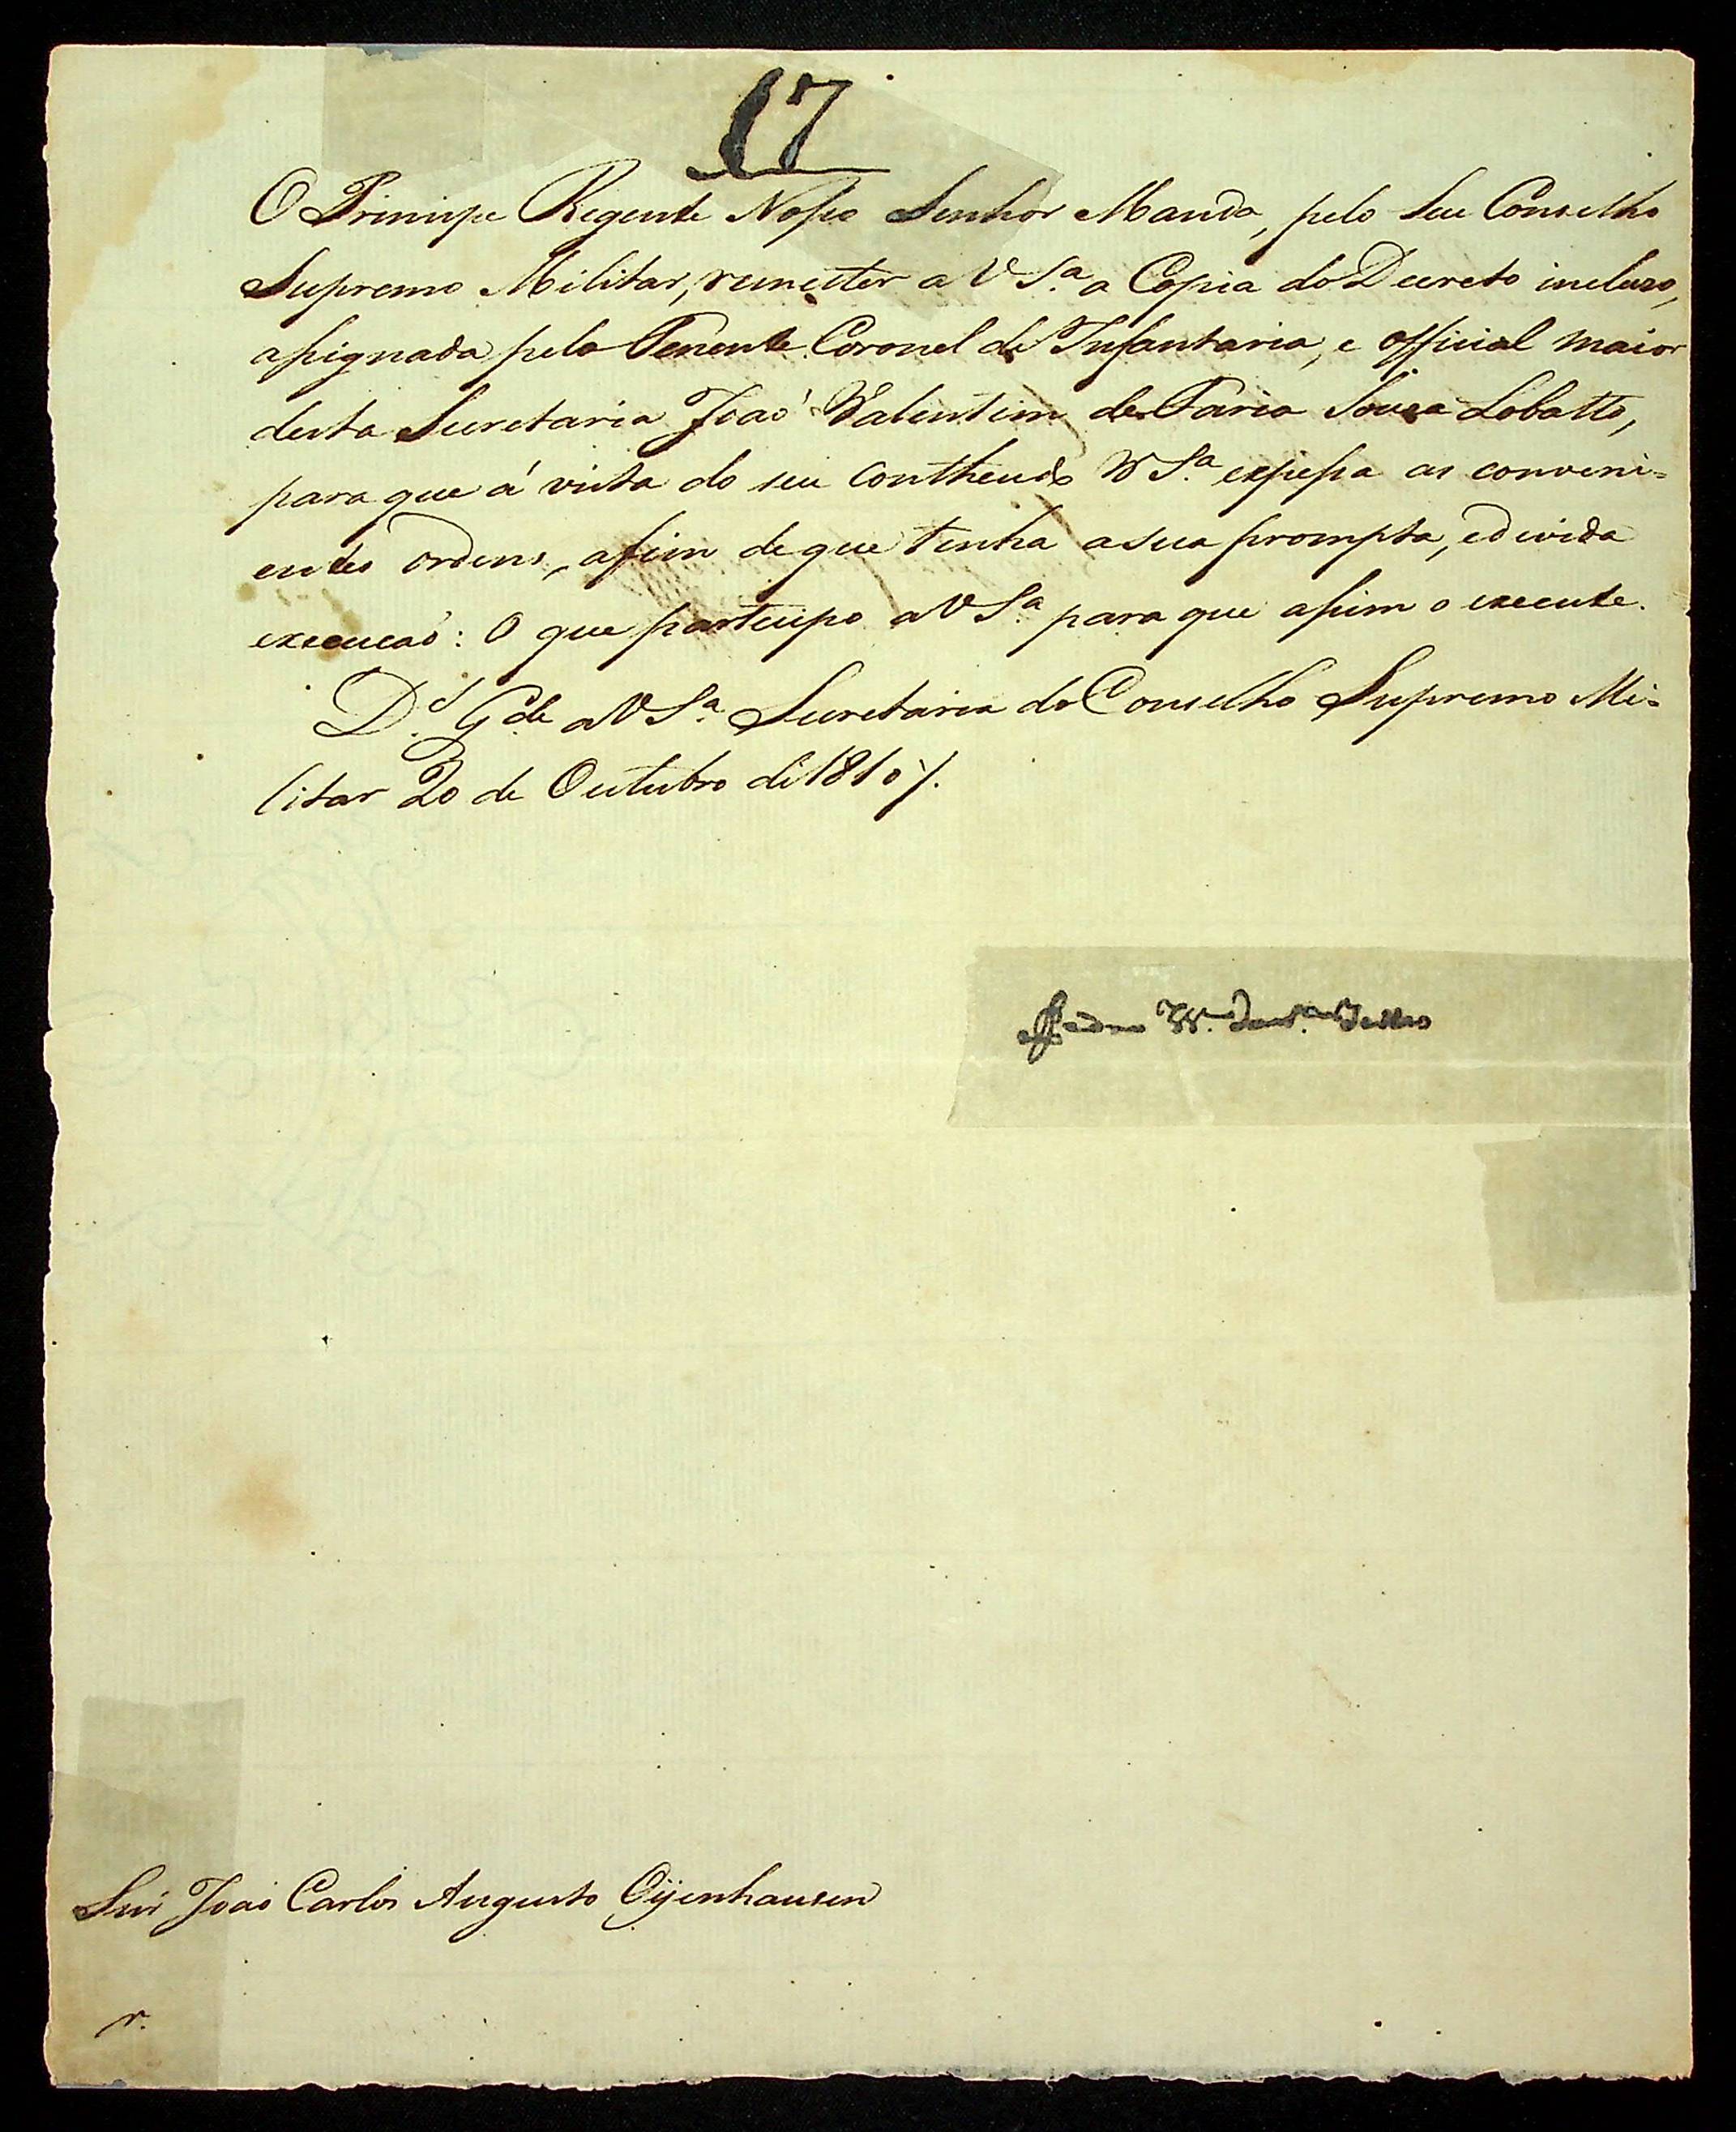 17
O Principe Regente Nosso Senhor Manda, pelo Seu Conselho
Supremo Militar, remetter a V S.ª a Copia do Decreto incluso,
assignada pelo Tenente Coronel de Infantaria, e Official maior
desta Secretaria João Valentim de Faria Souza Lobatto,
para que á vista do seu contheudo V S.ª expessa as conveni=
entes ordens, afim de que tenha a sua prompta, e divida
execucaõ: O que participo a V S.ª para que assim o execute.
D.s G.de a V S.ª Secretaria do Conselho Supremo Mi=
litar 20 de Outubro de 1810 /.
Snr João Carlos Augusto Oÿenhausen
r.